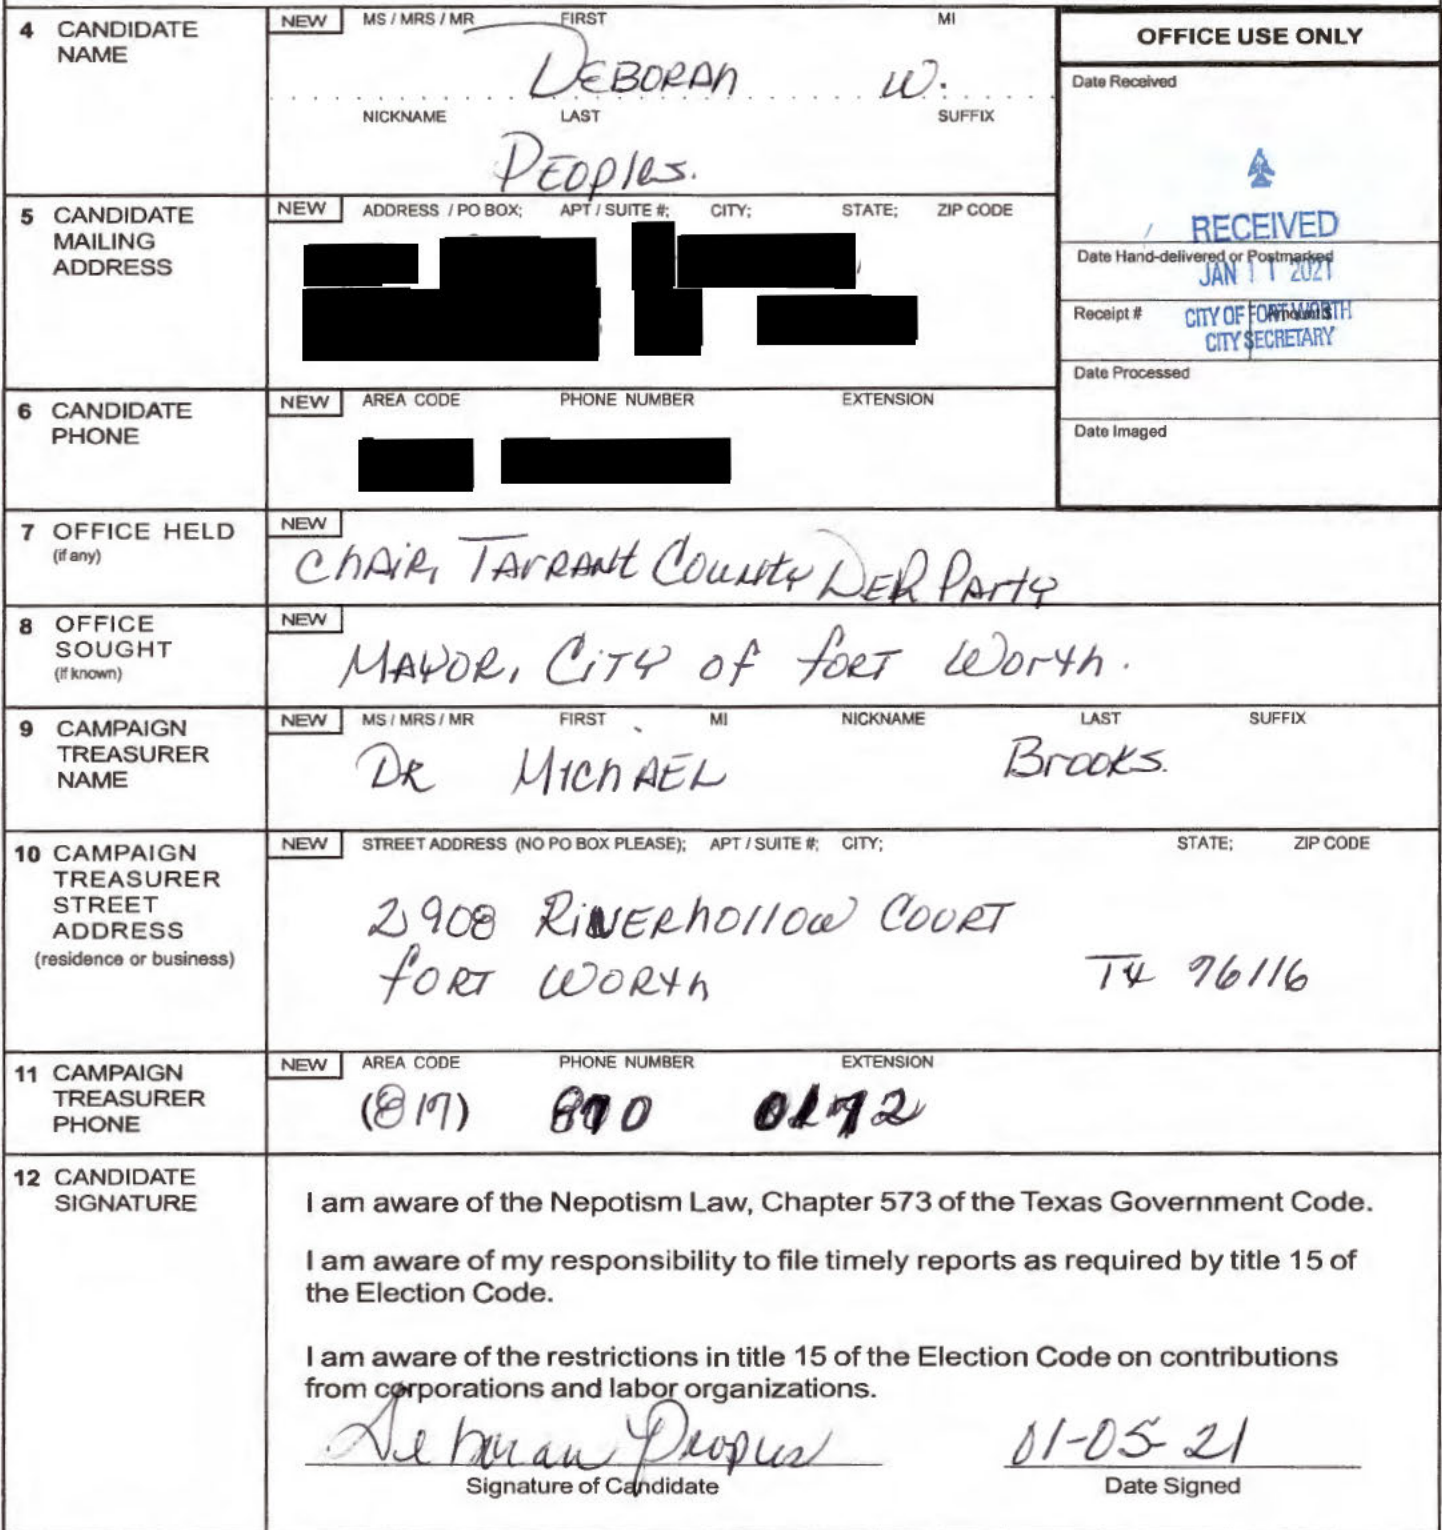 4 CANDIDATE NAME
NEW MS / MRS / MR FIRST MI
DEBORAH W.
NICKNAME LAST SUFFIX
PEOPLES.
OFFICE USE ONLY
Date Received
RECEIVED
Date Hand-delivered or Postmarked
JAN 11 2021
Receipt # Amount $
CITY OF FORT WORTH
CITY SECRETARY
Date Processed
Date Imaged
5 CANDIDATE MAILING ADDRESS
NEW ADDRESS / PO BOX; APT / SUITE #; CITY; STATE; ZIP CODE
6 CANDIDATE PHONE
NEW AREA CODE PHONE NUMBER EXTENSION
7 OFFICE HELD
(if any)
NEW
CHAIR, TARRANT COUNTY PARTY
8 OFFICE SOUGHT
(if known)
NEW
MAYOR, CITY OF FORT WORTH.
9 CAMPAIGN TREASURER NAME
NEW MS / MRS / MR FIRST MI NICKNAME LAST SUFFIX
DR MICHAEL Brooks.
10 CAMPAIGN TREASURER STREET ADDRESS
(residence or business)
NEW STREET ADDRESS (NO PO BOX PLEASE); APT / SUITE #; CITY; STATE; ZIP CODE
2908 RIVERHOLLOW COURT
FORT WORTH TX 76116
11 CAMPAIGN TREASURER PHONE
NEW AREA CODE PHONE NUMBER EXTENSION
(817)
12 CANDIDATE SIGNATURE
I am aware of the Nepotism Law, Chapter 573 of the Texas Government Code.
I am aware of my responsibility to file timely reports as required by title 15 of
the Election Code.
I am aware of the restrictions in title 15 of the Election Code on contributions
from corporations and labor organizations.
Deborah Peoples 01-05-21
Signature of Candidate Date Signed